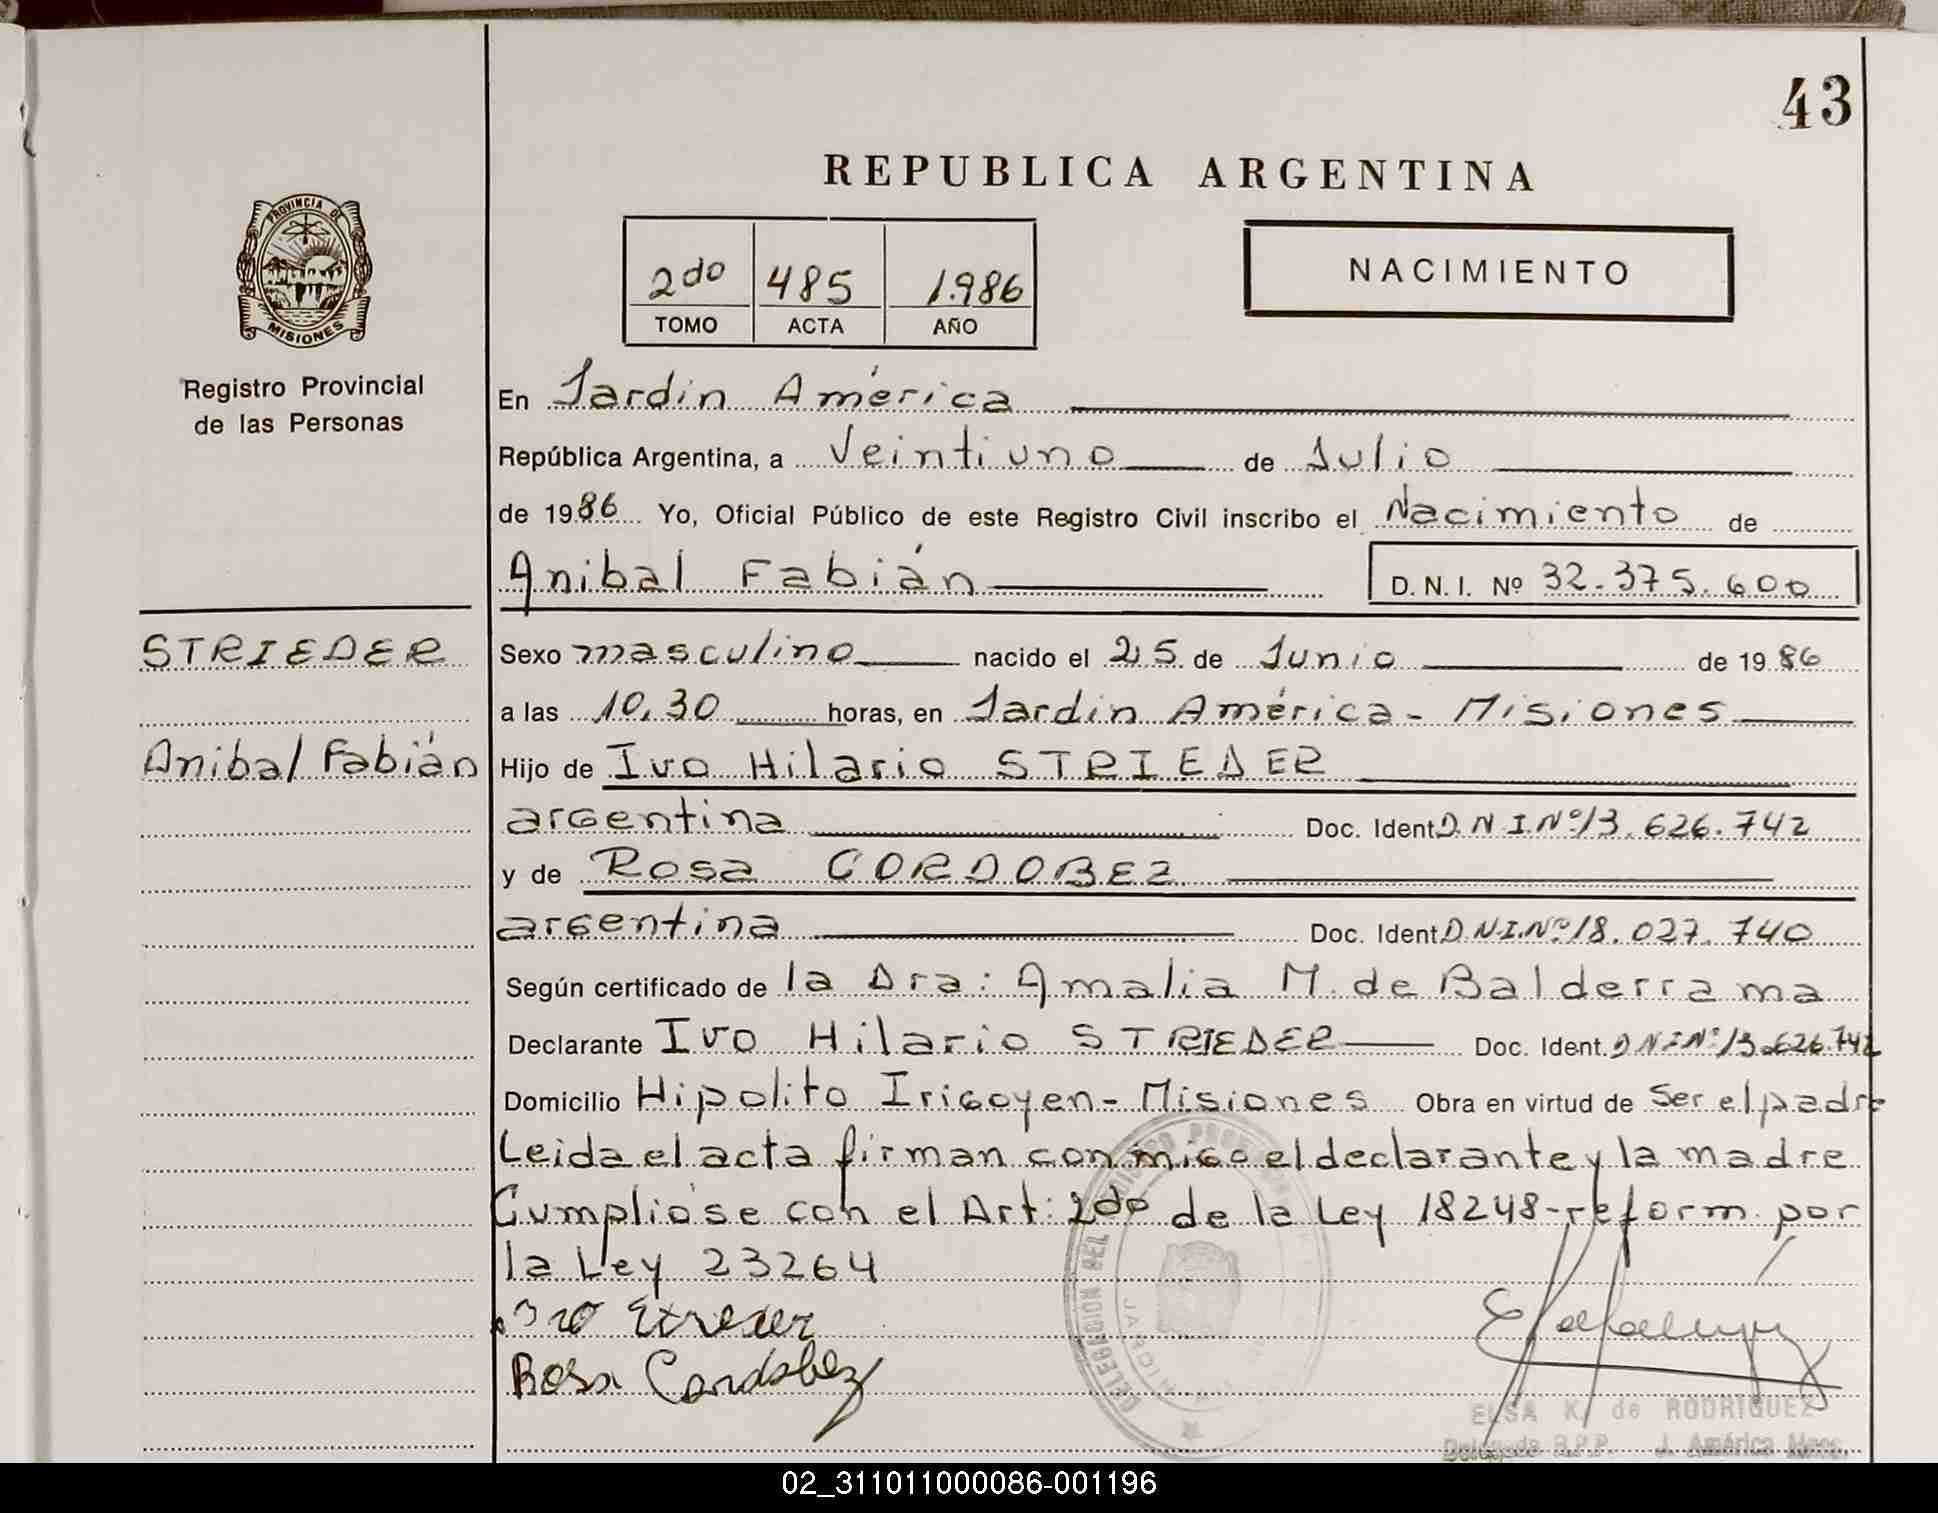 43
REPUBLICA ARGENTINA
PROVINCIA DE
MISIONES
Registro Provincial
de las Personas
2do 485 1.986
TOMO ACTA AÑO
NACIMIENTO
En Jardin América
República Argentina, a Veintiuno de Julio
de 1986 Yo, Oficial Público de este Registro Civil inscribo el Nacimiento de
Anibal Fabián D.N.I. Nº 32.375.600
STRIEDER
Sexo masculino nacido el 25 de Junio de 1986
a las 10,30 horas, en Jardin América - Misiones
Anibal Fabián
Hijo de Ivo Hilario STRIEDER
argentina Doc. Ident D.N.I.Nº13.626.742
y de Rosa CORDOBEZ
argentina Doc. Ident D.N.I.Nº18.027.740
Según certificado de la Dra: Amalia M. de Balderrama
Declarante Ivo Hilario STRIEDER Doc. Ident. DNINº13.626.742
Domicilio Hipolito Irigoyen - Misiones Obra en virtud de Ser el padre
Leida el acta firman conmigo el declarante y la madre
Cumplióse con el Art: 2do de la Ley 18248-reform. por
la Ley 23264
Ivo Strieder
Rosa Cordobez
DELEGACION DEL REGISTRO
ELSA K. de RODRIGUEZ
Delegada R.P.P. J. América Mnes.
02_311011000086-001196